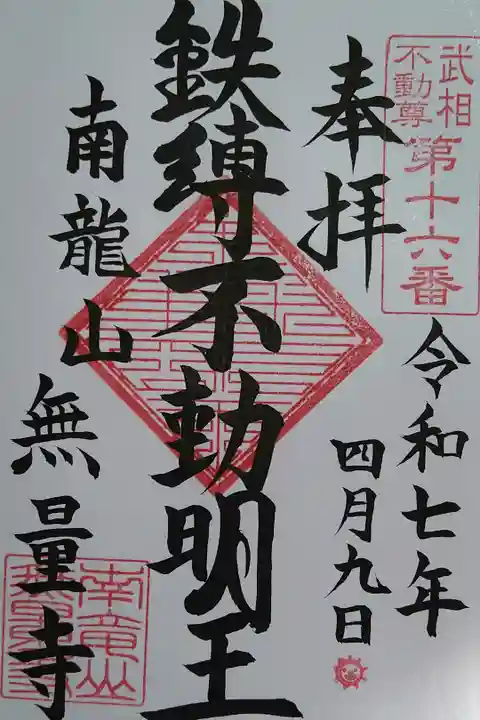 武相
不動尊
第十六番
奉拝
令和七年
四月九日
鉄縛不動明王
南龍山
無量寺
南竜山